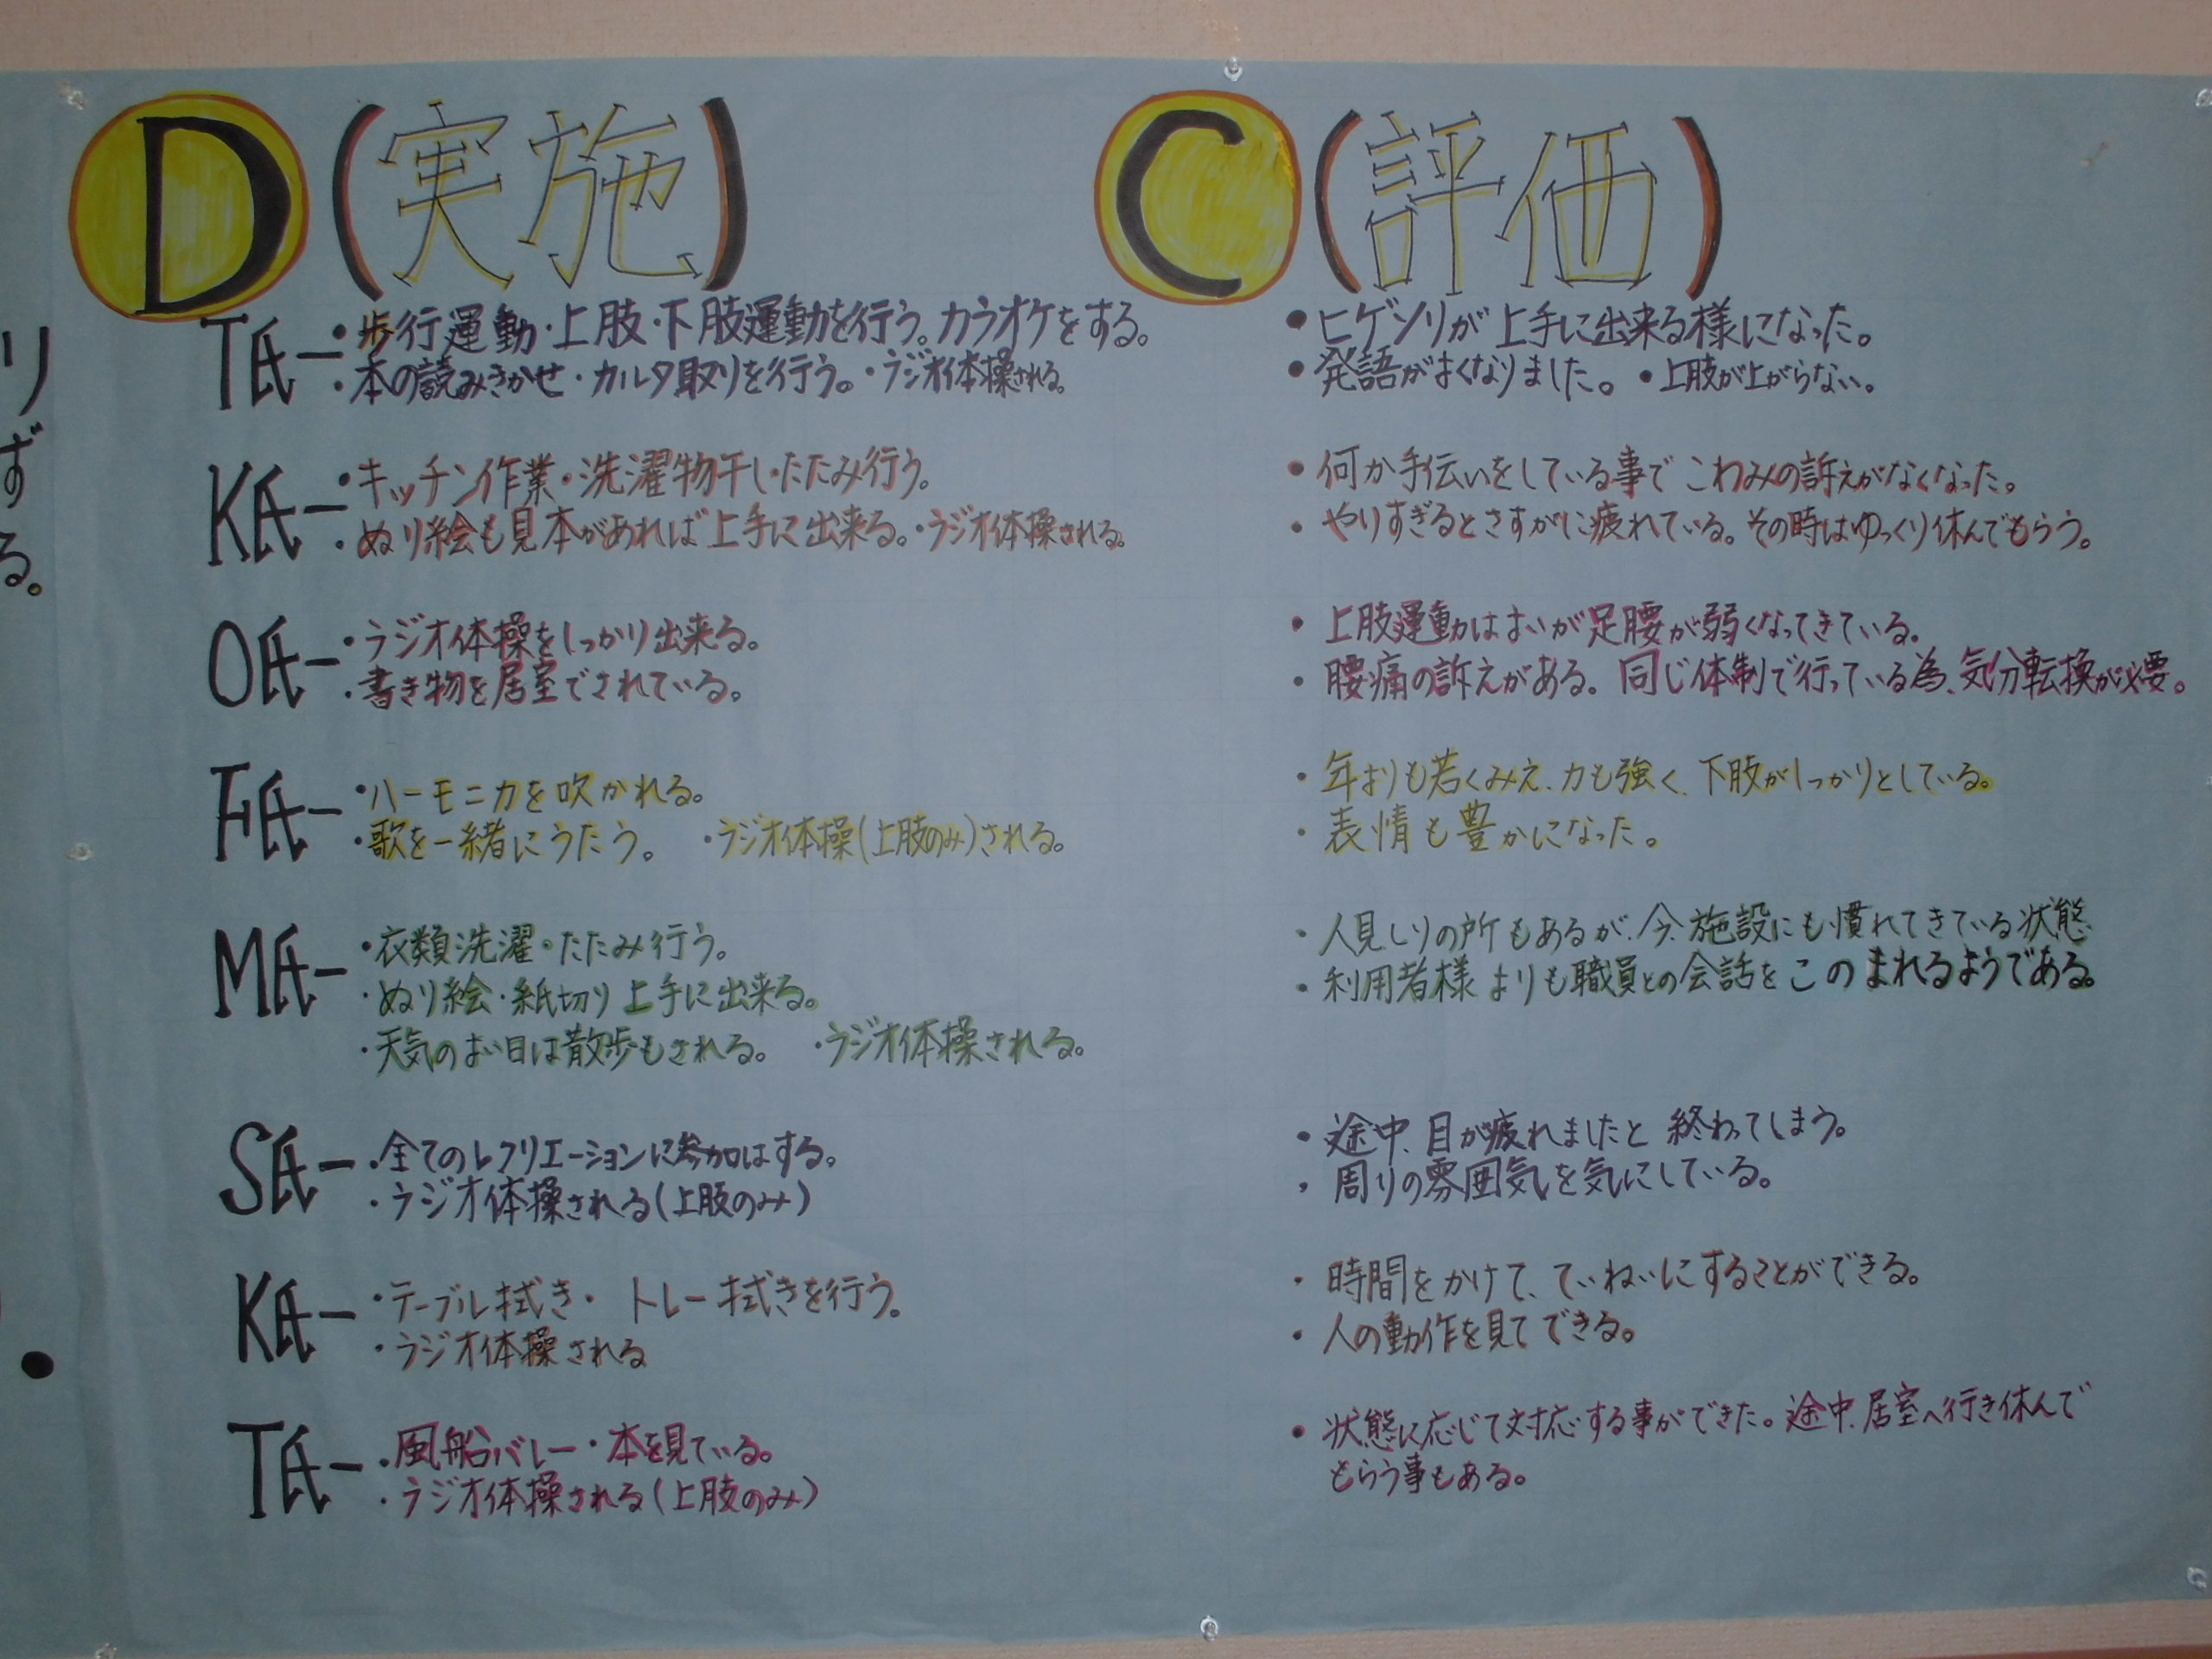 りずる。
D(実施)
T氏-・歩行運動・上肢・下肢運動を行う。カラオケをする。
・本の読みきかせ・カルタ取りを行う。・ラジオ体操される。
K氏-・キッチン作業・洗濯物干し・たたみ行う。
・ぬり絵も見本があれば上手に出来る。・ラジオ体操される。
O氏-・ラジオ体操をしっかり出来る。
・書き物を居室でされている。
F氏-・ハーモニカを吹かれる。
・歌を一緒にうたう。 ・ラジオ体操(上肢のみ)される。
M氏-・衣類洗濯・たたみ行う。
・ぬり絵・紙切り上手に出来る。
・天気のよい日は散歩もされる。 ・ラジオ体操される。
S氏-・全てのレクリエーションに参加はする。
・ラジオ体操される(上肢のみ)
K氏-・テーブル拭き・トレー拭きを行う。
・ラジオ体操される
T氏-・風船バレー・本を見ている。
・ラジオ体操される(上肢のみ)
C(評価)
・ヒゲソリが上手に出来る様になった。
・発語がよくなりました。・上肢が上がらない。
・何か手伝いをしている事でこわみの訴えがなくなった。
・やりすぎるとさすがに疲れている。その時はゆっくり休んでもらう。
・上肢運動はよいが足腰が弱くなってきている。
・腰痛の訴えがある。同じ体制で行っている為、気分転換が必要。
・年よりも若くみえ、力も強く、下肢がしっかりとしている。
・表情も豊かになった。
・人見しりの所もあるが、今、施設にも慣れてきている状態
・利用者様よりも職員との会話をこのまれるようである。
・途中、目が疲れましたと終わってしまう。
・周りの雰囲気を気にしている。
・時間をかけて、ていねいにすることができる。
・人の動作を見てできる。
・状態に応じて対応する事ができた。途中、居室へ行き休んで
もらう事もある。